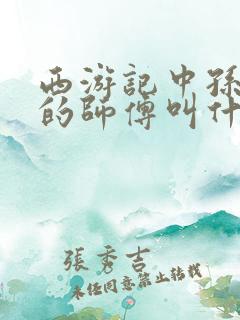 西游記中孫
的師傅叫什
張秀吉
未经同意禁止转载